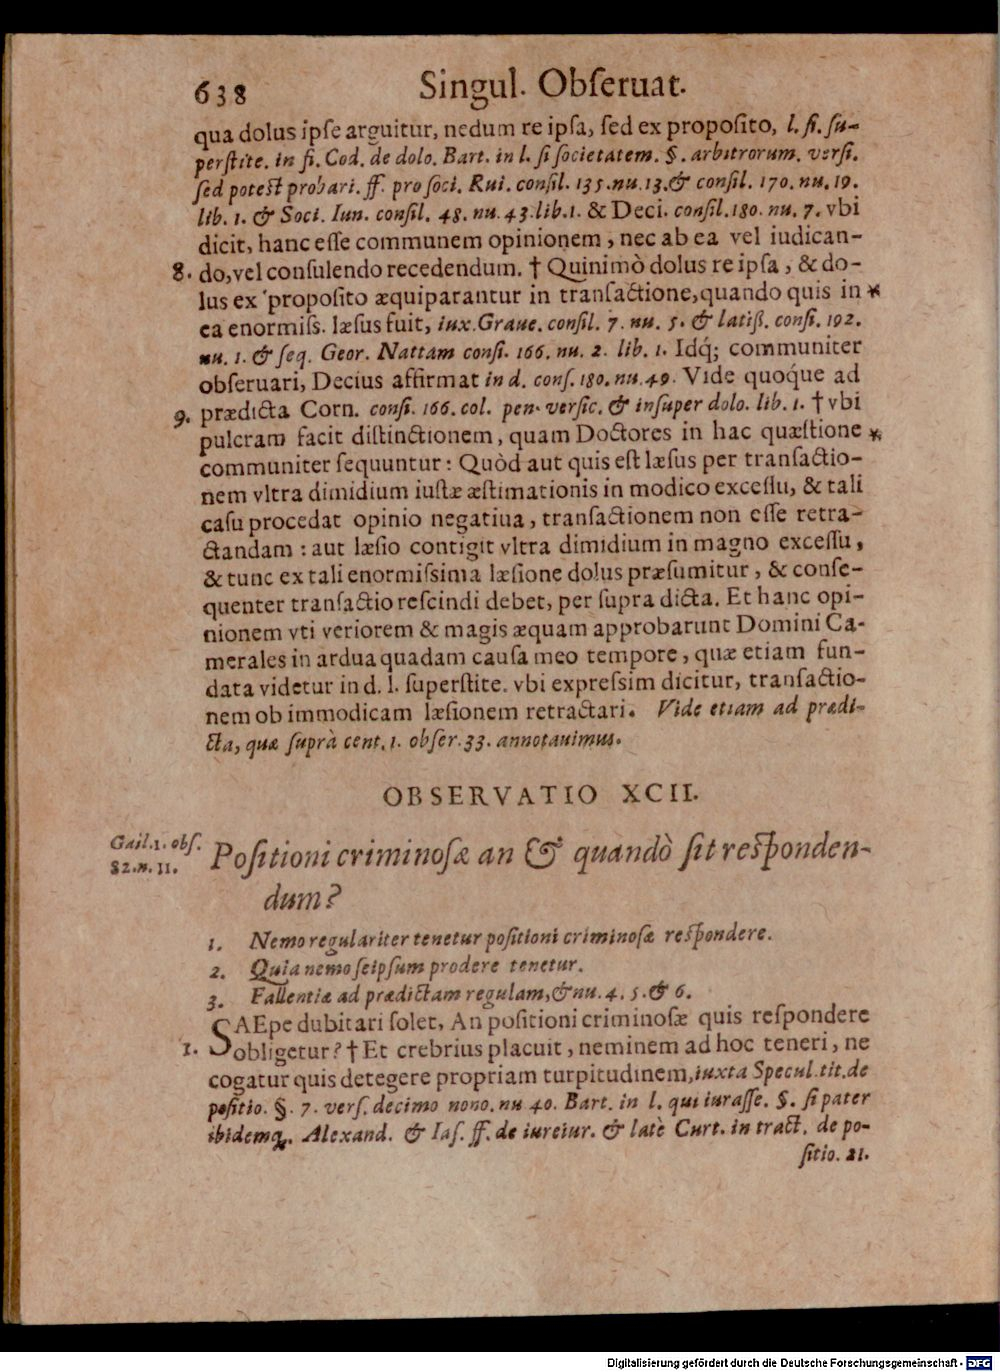 638 Singul. Obſeruat.
qua dolus ipſe arguitur, nedum re ipſa, ſed ex propoſito, l. ſi. ſu-
perſtite. in fi. Cod. de dolo. Bart. in l. ſi ſocietatem. §. arbitrorum. verſi.
ſed poteſt probari. ff. pro ſoci. Rui. conſil. 135. nu. 13. & conſil. 170. nu. 19.
lib. 1. & Soci. Iun. conſil. 48. nu. 43. lib. 1. & Deci. conſil. 180. nu. 7. vbi
dicit, hanc eſſe communem opinionem, nec ab ea vel iudican-
8. do, vel conſulendo recedendum. † Quinimò dolus re ipſa, & do-
lus ex propoſito æquiparantur in tranſactione, quando quis in *
ea enormiſs. læſus fuit, iux. Graue. conſil. 7. nu. 5. & latiß. conſi. 192.
nu. 1. & ſeq. Geor. Nattam conſi. 166. nu. 2. lib. 1. Idq́; communiter
obſeruari, Decius affirmat in d. conſ. 180. nu. 49. Vide quoq́ue ad
9. prædicta Corn. conſi. 166. col. pen. verſic. & inſuper dolo. lib. 1. † vbi
pulcram facit diſtinctionem, quam Doctores in hac quæſtione *
communiter ſequuntur: Quòd aut quis eſt læſus per tranſactio-
nem vltra dimidium iuſtæ æſtimationis in modico exceſſu, & tali
caſu procedat opinio negatiua, tranſactionem non eſſe retra-
ctandam: aut læſio contigit vltra dimidium in magno exceſſu,
& tunc ex tali enormiſsima læſione dolus præſumitur, & conſe-
quenter tranſactio reſcindi debet, per ſupra dicta. Et hanc opi-
nionem vti veriorem & magis æquam approbarunt Domini Ca-
merales in ardua quadam cauſa meo tempore, quæ etiam fun-
data videtur in d. l. ſuperſtite. vbi expreſsim dicitur, tranſactio-
nem ob immodicam læſionem retractari. Vide etiam ad prædi-
cta, quæ ſuprà cent. 1. obſer. 33. annotauimus.
OBSERVATIO XCII.
Gail. 1. obſ.
82. n. 11.
Poſitioni criminoſæ an & quandò ſit reſponden-
dum?
1. Nemo regulariter tenetur poſitioni criminoſæ reſpondere.
2. Quia nemo ſeipſum prodere tenetur.
3. Fallentiæ ad prædictam regulam, & nu. 4. 5. & 6.
SAEpe dubitari ſolet, An poſitioni criminoſæ quis reſpondere
1. obligetur? † Et crebrius placuit, neminem ad hoc teneri, ne
cogatur quis detegere propriam turpitudinem, iuxta Specul. tit. de
poſitio. §. 7. verſ. decimo nono. nu 40. Bart. in l. qui iuraſſe. §. ſi pater
ibidemq́. Alexand. & Iaſ. ff. de iureiur. & latè Curt. in tract. de po-
ſitio. 21.
Digitalisierung gefördert durch die Deutsche Forschungsgemeinschaft - DFG